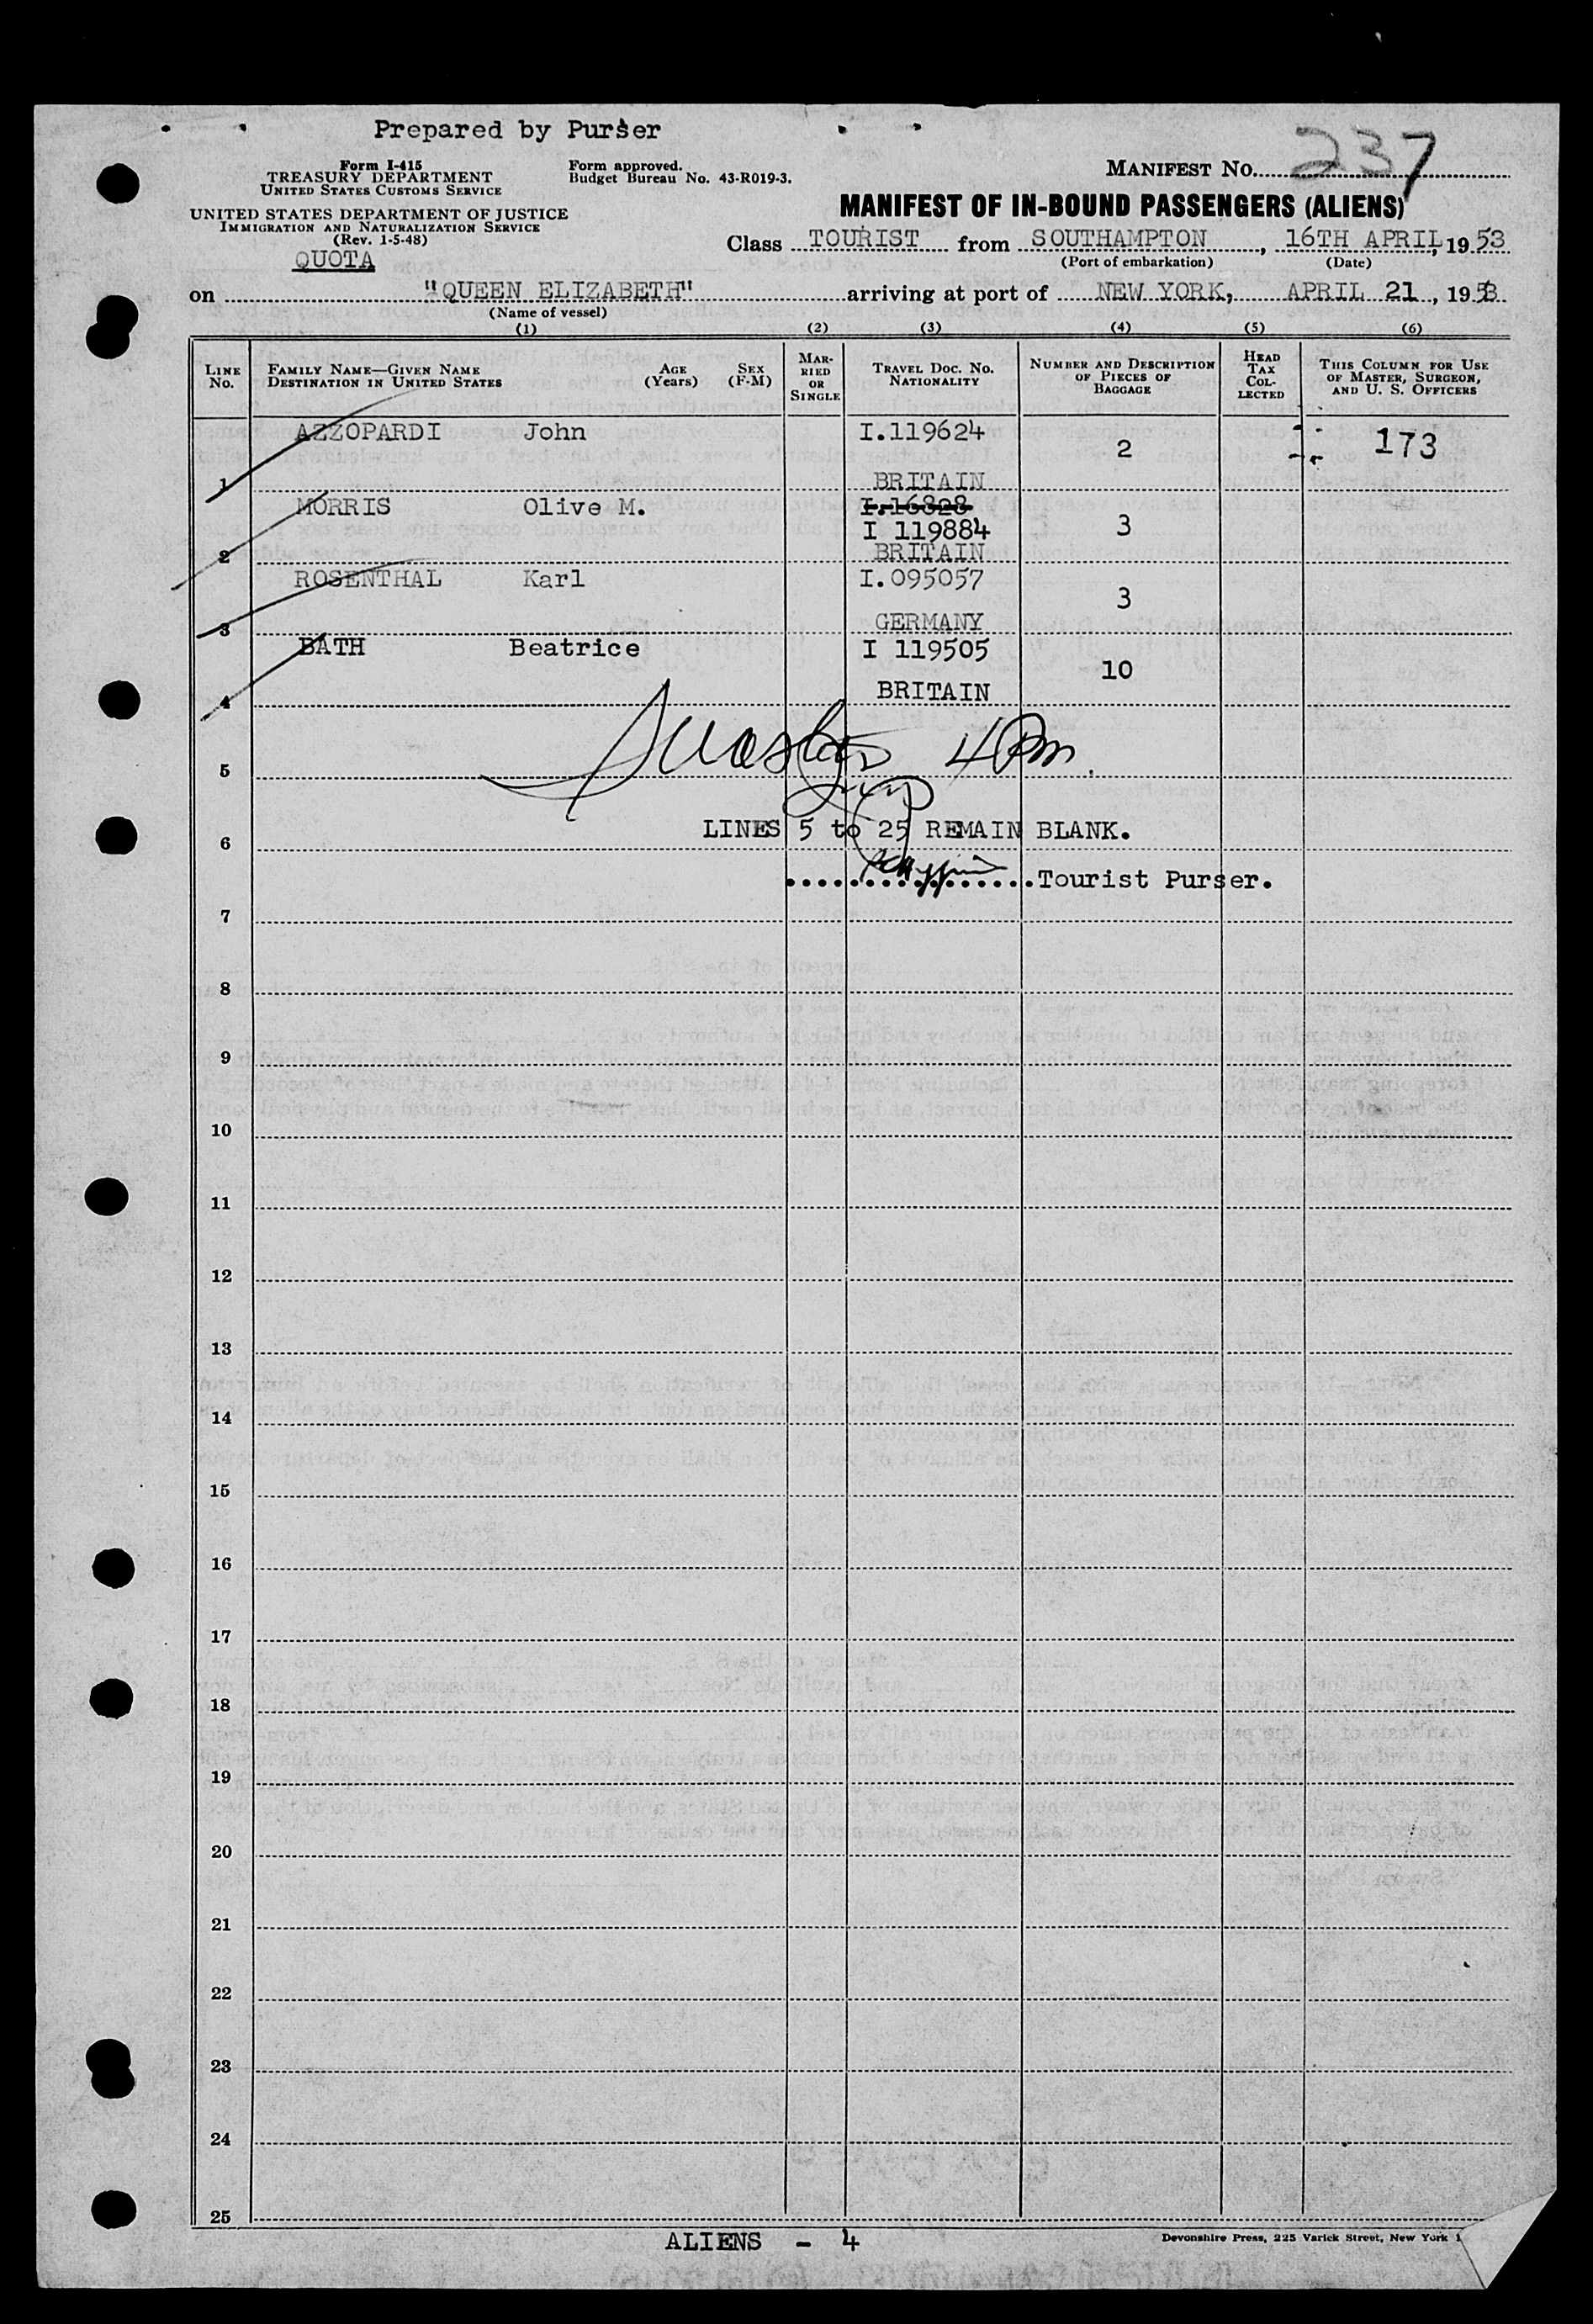 Prepared by Purser
Form I-415
TREASURY DEPARTMENT
UNITED STATES CUSTOMS SERVICE
Form approved.
Budget Bureau No. 43-R019-3.
MANIFEST No. 237
UNITED STATES DEPARTMENT OF JUSTICE
IMMIGRATION AND NATURALIZATION SERVICE
(Rev. 1-5-48)
QUOTA
MANIFEST OF IN-BOUND PASSENGERS (ALIENS)
Class TOURIST from SOUTHAMPTON, 16TH APRIL, 1953
(Port of embarkation) (Date)
on "QUEEN ELIZABETH" arriving at port of NEW YORK, APRIL 21, 1953
(Name of vessel)
(1) (2) (3) (4) (5) (6)
LINE No.
FAMILY NAME—GIVEN NAME
DESTINATION IN UNITED STATES
AGE (Years)
SEX (F-M)
MARRIED OR SINGLE
TRAVEL DOC. No. NATIONALITY
NUMBER AND DESCRIPTION OF PIECES OF BAGGAGE
HEAD TAX COLLECTED
THIS COLUMN FOR USE OF MASTER, SURGEON, AND U. S. OFFICERS
AZZOPARDI John I.119624 2 173
1 BRITAIN
MORRIS Olive M. I.16828
I 119884 3
2 BRITAIN
ROSENTHAL Karl I.095057 3
3 GERMANY
BATH Beatrice I 119505 10
4 BRITAIN
4 Pm
5
LINES 5 to 25 REMAIN BLANK.
6
Tourist Purser.
7
8
9
10
11
12
13
14
15
16
17
18
19
20
21
22
23
24
25
ALIENS - 4
Devonshire Press, 225 Varick Street, New York 1